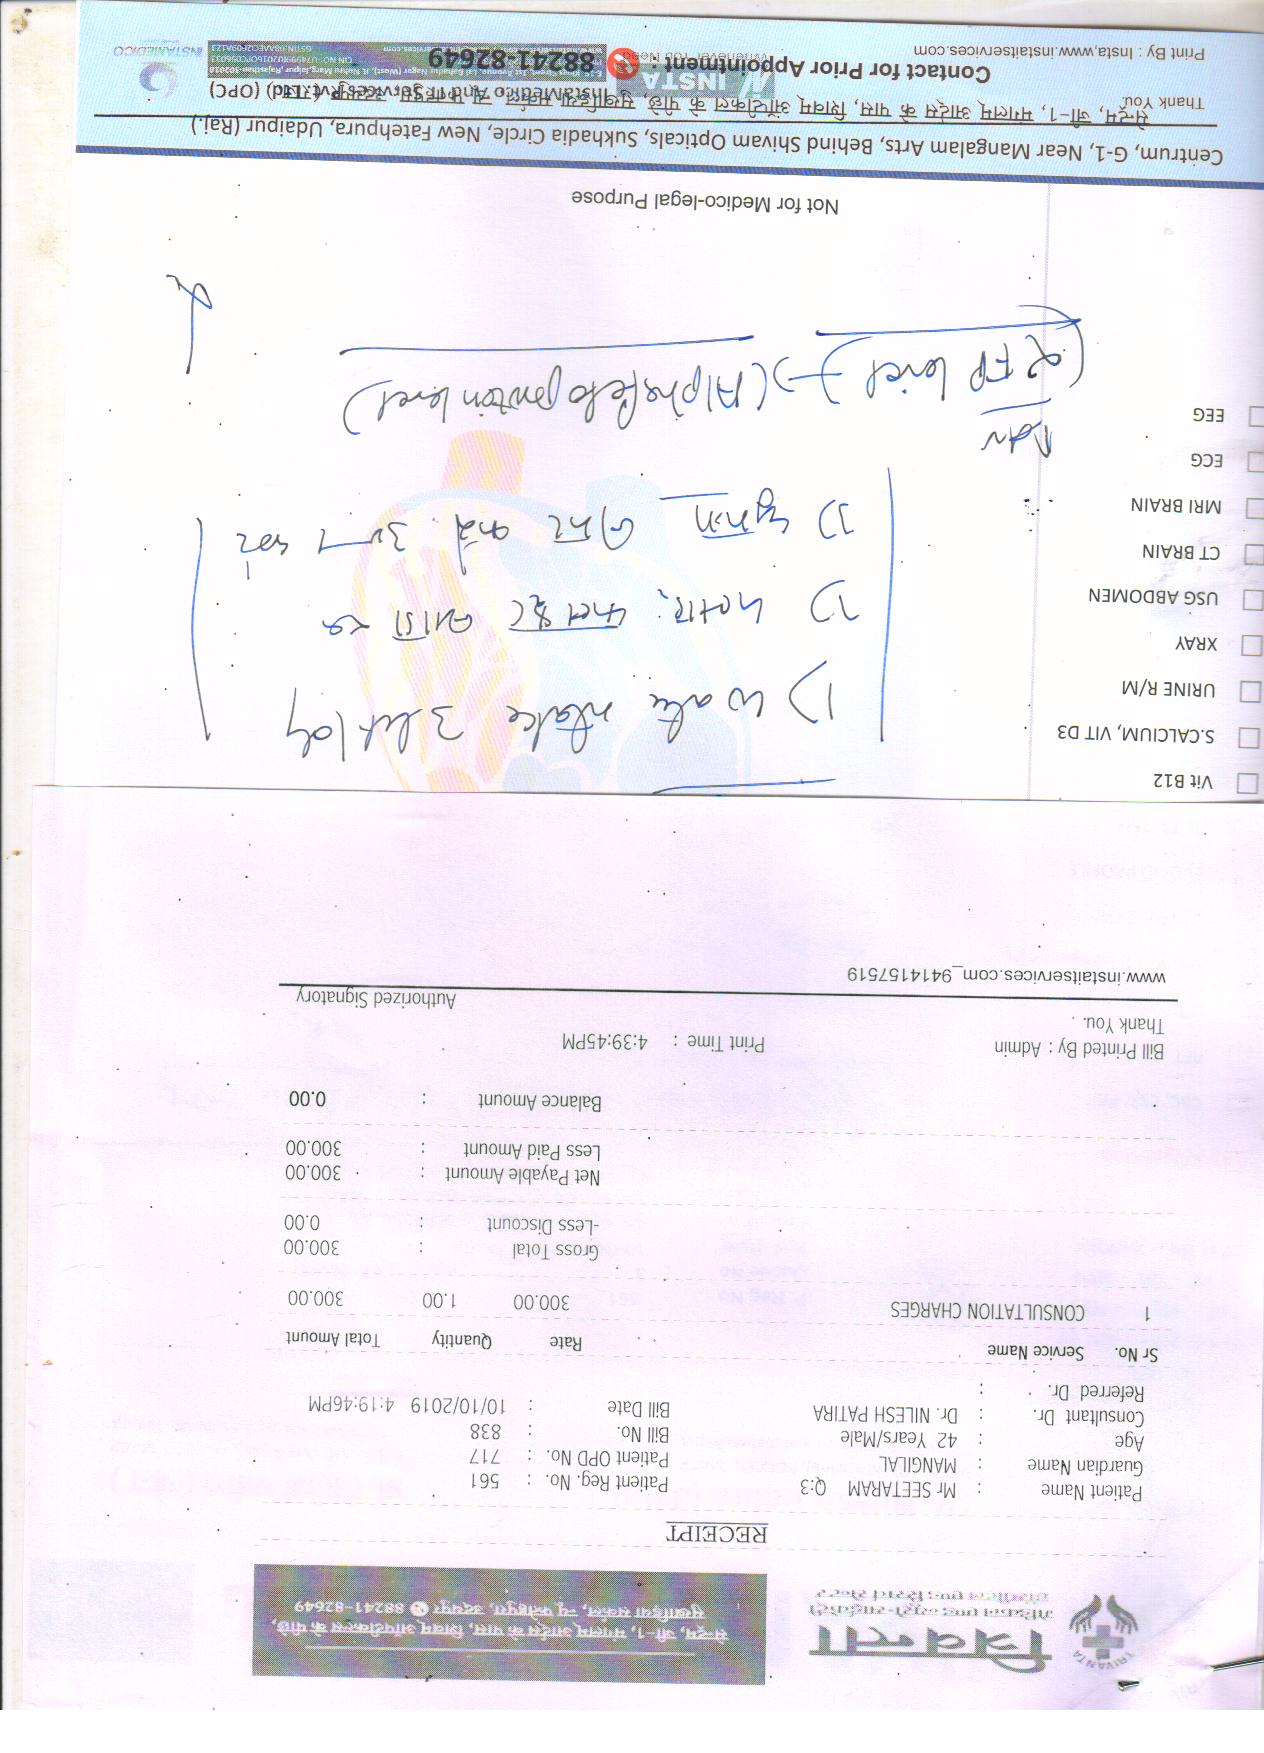 त्रिवन्ता
TRIVANTA
मेडिकल एण्ड न्यूरो-साईकेट्री
सेन्ट्रम, जी-1, मंगलम आर्ट्स के पास, शिवम ऑप्टीकल्स के पीछे,
सुखाड़िया सर्कल, न्यू फतेहपुरा, उदयपुर 88241-82649
RECEIPT
Patient Name : Mr SEETARAM Q:3 Patient Reg. No. : 561
Guardian Name : MANGILAL Patient OPD No. : 717
Age : 42 Years/Male Bill No. : 838
Consultant Dr. : Dr. NILESH PATIRA Bill Date : 10/10/2019 4:19:46PM
Referred Dr. :
Sr No. Service Name Rate Quantity Total Amount
1 CONSULTATION CHARGES 300.00 1.00 300.00
Gross Total : 300.00
-Less Discount : 0.00
Net Payable Amount : 300.00
Less Paid Amount : 300.00
Balance Amount : 0.00
Bill Printed By : Admin Print Time : 4:39:45PM
Thank You.
Authorized Signatory
www.instaitservices.com_9414157519
Vit B12
S.CALCIUM, VIT D3
URINE R/M
XRAY
USG ABDOMEN
CT BRAIN
MRI BRAIN
ECG
EEG
1) water intake 3 lit/day
(αFP level) → (Alpha feto protein level)
Not for Medico-legal Purpose
Centrum, G-1, Near Mangalam Arts, Behind Shivam Opticals, Sukhadia Circle, New Fatehpura, Udaipur (Raj.)
सेन्ट्रम, जी-1, मंगलम् आर्ट्स के पास, शिवम् ऑप्टीकल के पीछे, सुखाड़िया सर्कल, न्यू फतहपुरा, उदयपुर (राज.)
Thank You.
InstaMedico And IT Services Pvt. Ltd. (OPC)
Contact for Prior Appointment : 88241-82649
Print By : Insta,www.instaitservices.com
INSTA
Whenever You Need
INSTAMEDICO